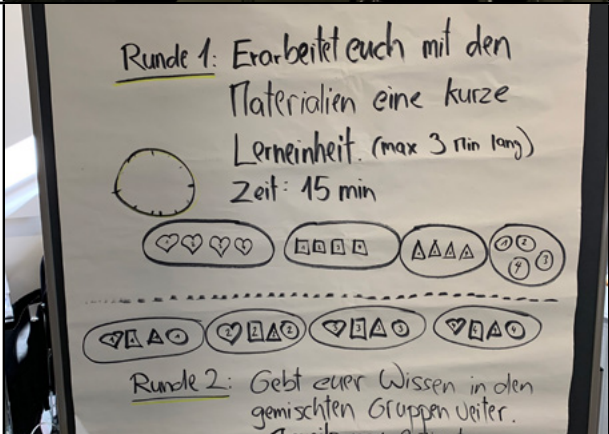 Runde 1: Erarbeitet euch mit den
Materialien eine kurze
Lerneinheit. (max 3 Min lang)
Zeit: 15 min
1 2 3 4
Runde 2: Gebt euer Wissen in den
gemischten Gruppen weiter.